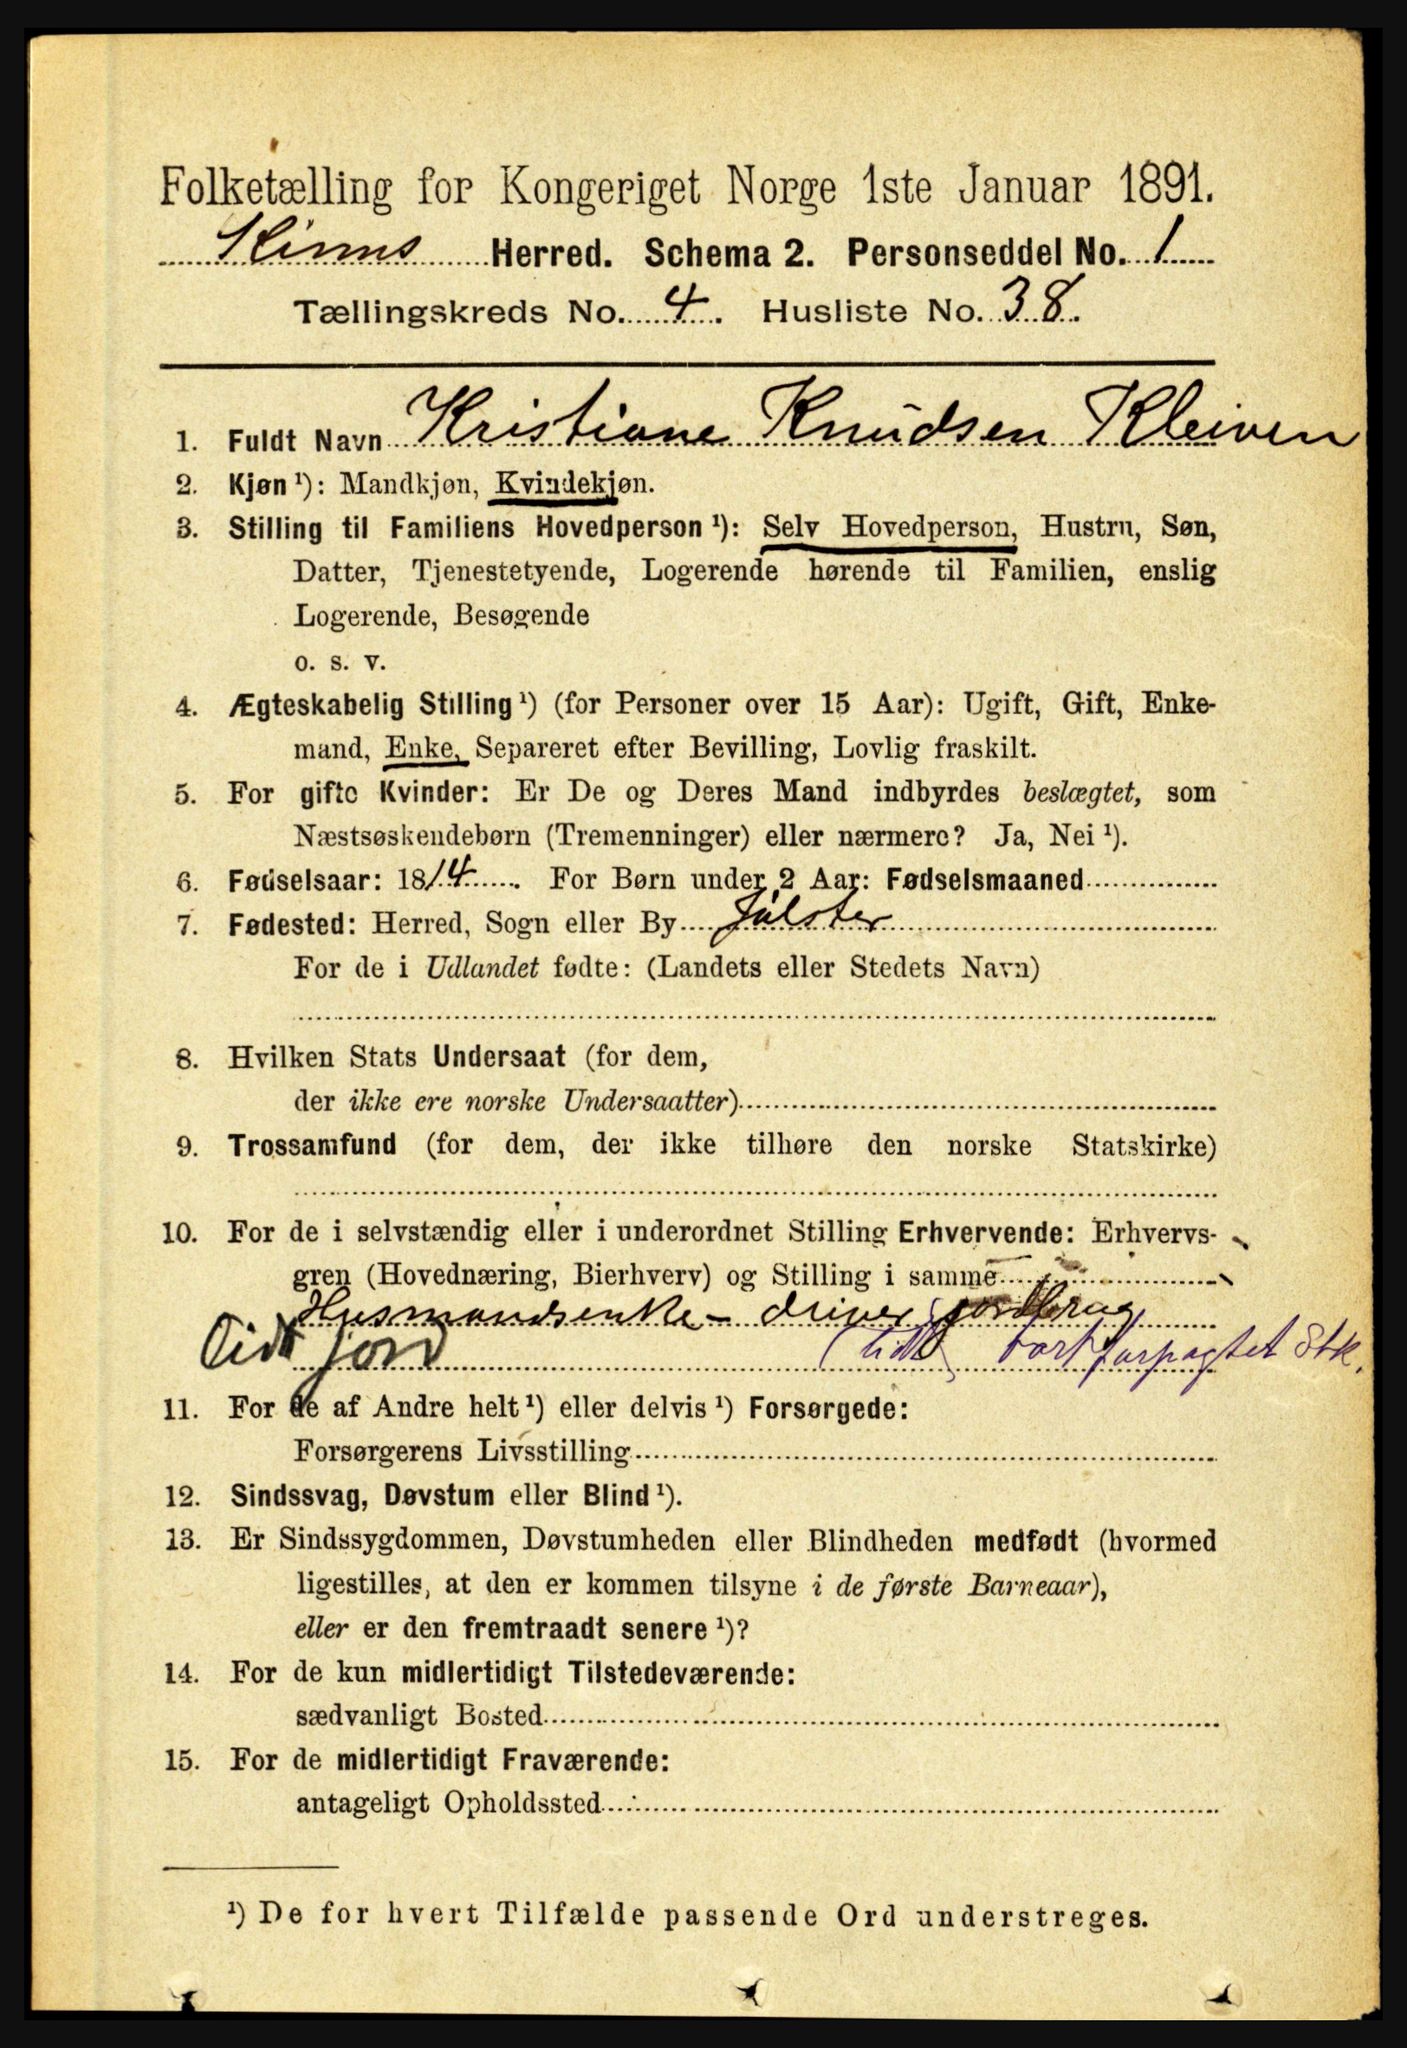 Folketælling for Kongeriget Norge 1ste Januar 1891.
Kinns Herred. Schema 2. Personseddel No. 1
Tællingskreds No. 4. Husliste No. 38.
1. Fuldt Navn Kristiane Knudsen Kleiven
2. Kjøn ¹): Mandkjøn, Kvindekjøn.
3. Stilling til Familiens Hovedperson ¹): Selv Hovedperson, Hustru, Søn,
Datter, Tjenestetyende, Logerende hørende til Familien, enslig
Logerende, Besøgende
o. s. v.
4. Ægteskabelig Stilling ¹) (for Personer over 15 Aar): Ugift, Gift, Enke-
mand, Enke, Separeret efter Bevilling, Lovlig fraskilt.
5. For gifte Kvinder: Er De og Deres Mand indbyrdes beslægtet, som
Næstsøskendebørn (Tremenninger) eller nærmere? Ja, Nei ¹).
6. Fødselsaar: 1814. For Børn under 2 Aar: Fødselsmaaned
7. Fødested: Herred, Sogn eller By Jølster
For de i Udlandet fødte: (Landets eller Stedets Navn)
8. Hvilken Stats Undersaat (for dem,
der ikke ere norske Undersaatter)
9. Trossamfund (for dem, der ikke tilhøre den norske Statskirke)
10. For de i selvstændig eller i underordnet Stilling Erhvervende: Erhvervs-
gren (Hovednæring, Bierhverv) og Stilling i samme
Husmandsenke - driver jordbrug
Lidt jord (lidt bortforpagtet Stk.
11. For de af Andre helt ¹) eller delvis ¹) Forsørgede:
Forsørgerens Livsstilling
12. Sindssvag, Døvstum eller Blind ¹).
13. Er Sindssygdommen, Døvstumheden eller Blindheden medfødt (hvormed
ligestilles, at den er kommen tilsyne i de første Barneaar),
eller er den fremtraadt senere ¹)?
14. For de kun midlertidigt Tilstedeværende:
sædvanligt Bosted
15. For de midlertidigt Fraværende:
antageligt Opholdssted
¹) De for hvert Tilfælde passende Ord understreges.